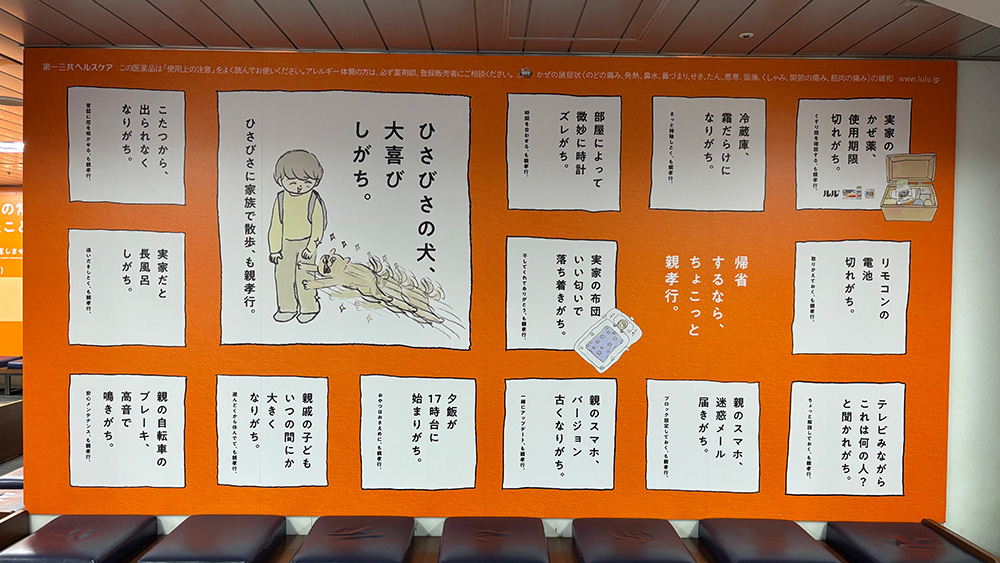 第一三共ヘルスケア この医薬品は「使用上の注意」をよく読んでお使いください。アレルギー体質の方は、必ず薬剤師、登録販売者にご相談ください。 かぜの諸症状(のどの痛み、発熱、鼻水、鼻づまり、せき、たん、悪寒、頭痛、くしゃみ、関節の痛み、筋肉の痛み)の緩和 www.lulu.jp
実家の
かぜ薬、
使用期限
切れがち。
くすり箱を確認する、も親孝行。
ルル
冷蔵庫、
霜だらけに
なりがち。
さっと掃除しとく、も親孝行。
部屋によって
微妙に時計
ズレがち。
時間を合わせる、も親孝行。
ひさびさの犬、
大喜び
しがち。
ひさびさに家族で散歩、も親孝行。
こたつから、
出られなく
なりがち。
昔話に花を咲かせる、も親孝行。
リモコンの
電池
切れがち。
取りかえておく、も親孝行。
帰省
するなら、
ちょこっと
親孝行。
実家の布団
いい匂いで
落ち着きがち。
干してくれてありがとう、も親孝行。
実家だと
長風呂
しがち。
追いだきしとく、も親孝行。
テレビみながら
これは何の人?
と聞かれがち。
ちょっと解説しておく、も親孝行。
親のスマホ、
迷惑メール
届きがち。
ブロック設定しておく、も親孝行。
親のスマホ、
バージョン
古くなりがち。
一緒にアップデート、も親孝行。
夕飯が
17時台に
始まりがち。
おやつはおさえめに、も親孝行。
親戚の子ども
いつの間にか
大きく
なりがち。
遊んどくから休んでて、も親孝行。
親の自転車の
ブレーキ、
高音で
鳴きがち。
安心メンテナンス、も親孝行。